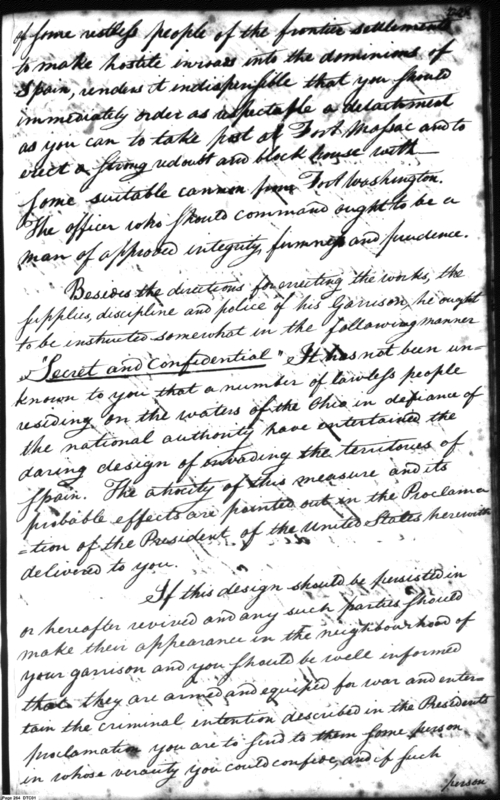 of some restless people of the frontier settlements
to make hostile inroads into the dominions of
Spain, renders it indispensible that you should
immediately order as respectable a detachment
as you can to take post at Fort Massac and to
erect a strong redoubt and block house with
some suitable cannon from Fort Washington.
The officer who should command ought to be a
man of approved integrity, firmness and prudence.
Besides the directions for erecting the works, the
supplies, discipline and police of his Garrison he ought
to be instructed somewhat in the following manner
"Secret and Confidential" It has not been un-
known to you that a number of lawless people
residing on the waters of the Ohio in defiance of
the national authority have entertained the
daring design of invading the territories of
Spain. The atrocity of this measure and its
probable effects are pointed out in the Proclama
=tion of the President of the United States herewith
delivered to you.
If this design should be persisted in
or hereafter revived and any such parties should
make their appearance in the neighbourhood of
your garrison and you should be well informed
that they are armed and equiped for war and enter-
tain the criminal intention described in the Presidents
proclamation you are to send to them some person
in whose veracity you could confide, and if such
person
Page 284 DTC01